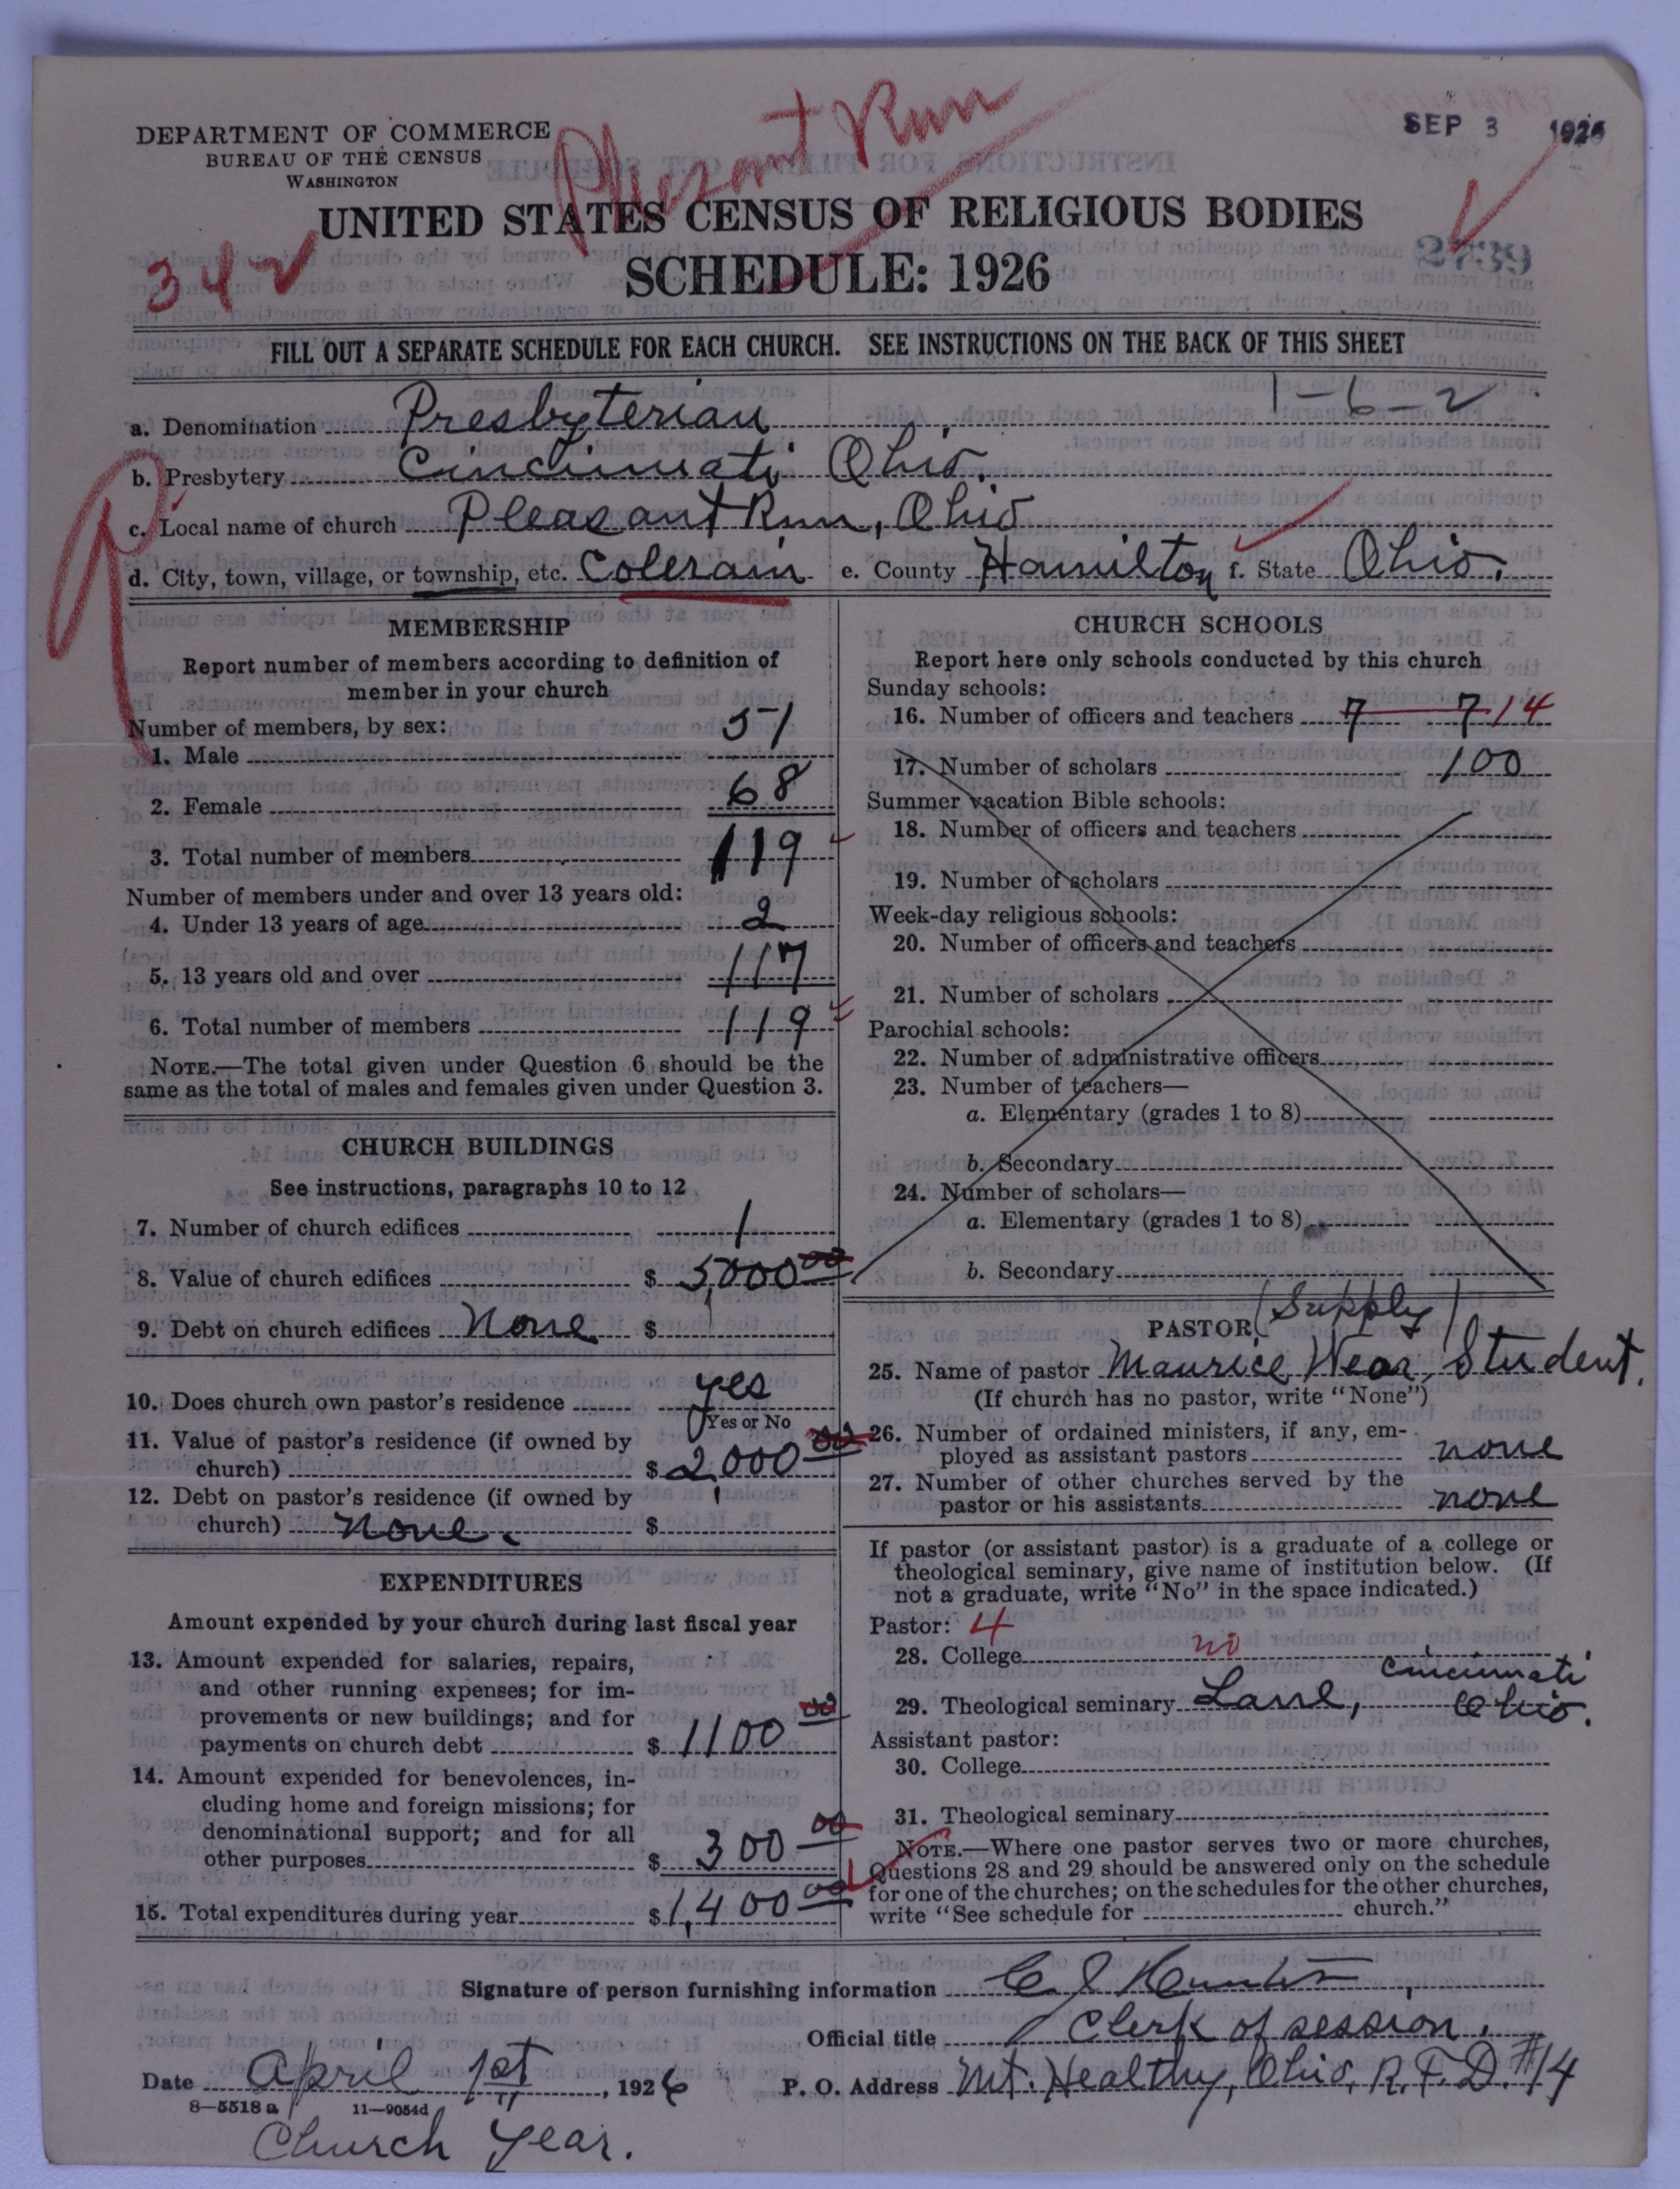 DEPARTMENT OF COMMERCE
BUREAU OF THE CENSUS
WASHINGTON
Pleasant Run
SEP 3 1926
UNITED STATES CENSUS OF RELIGIOUS BODIES
342
SCHEDULE: 1926
2739
FILL OUT A SEPARATE SCHEDULE FOR EACH CHURCH. SEE INSTRUCTIONS ON THE BACK OF THIS SHEET
1-6-2
a. Denomination Presbyterian
b. Presbytery Cincinnati Ohio.
c. Local name of church Pleasant Run, Ohio
d. City, town, village, or township, etc. Colerain e. County Hamilton f. State Ohio.
MEMBERSHIP
Report number of members according to definition of
member in your church
Number of members, by sex:
1. Male 51
2. Female 68
3. Total number of members 119
Number of members under and over 13 years old:
4. Under 13 years of age 2
5. 13 years old and over 117
6. Total number of members 119
NOTE.—The total given under Question 6 should be the
same as the total of males and females given under Question 3.
CHURCH BUILDINGS
See instructions, paragraphs 10 to 12
7. Number of church edifices 1
8. Value of church edifices $ 5,000 00
9. Debt on church edifices None $
10. Does church own pastor's residence yes
Yes or No
11. Value of pastor's residence (if owned by
church) $ 2,000 00
12. Debt on pastor's residence (if owned by
church) None. $
EXPENDITURES
Amount expended by your church during last fiscal year
13. Amount expended for salaries, repairs,
and other running expenses; for im-
provements or new buildings; and for
payments on church debt $ 1100 00
14. Amount expended for benevolences, in-
cluding home and foreign missions; for
denominational support; and for all
other purposes $ 300 00
15. Total expenditures during year $ 1,400 00
CHURCH SCHOOLS
Report here only schools conducted by this church
Sunday schools:
16. Number of officers and teachers 7 7 14
17. Number of scholars 100
Summer vacation Bible schools:
18. Number of officers and teachers
19. Number of scholars
Week-day religious schools:
20. Number of officers and teachers
21. Number of scholars
Parochial schools:
22. Number of administrative officers
23. Number of teachers—
a. Elementary (grades 1 to 8)
b. Secondary
24. Number of scholars—
a. Elementary (grades 1 to 8)
b. Secondary
PASTOR (Supply)
25. Name of pastor Maurice Wear, Student.
(If church has no pastor, write "None")
26. Number of ordained ministers, if any, em-
ployed as assistant pastors none
27. Number of other churches served by the
pastor or his assistants none
If pastor (or assistant pastor) is a graduate of a college or
theological seminary, give name of institution below. (If
not a graduate, write "No" in the space indicated.)
Pastor: 4
28. College no
29. Theological seminary Lane, Cincinnati
Ohio.
Assistant pastor:
30. College
31. Theological seminary
NOTE.—Where one pastor serves two or more churches,
Questions 28 and 29 should be answered only on the schedule
for one of the churches; on the schedules for the other churches,
write "See schedule for church."
Signature of person furnishing information C J Hunter
Official title Clerk of session.
Date April 1st, 1926 P. O. Address Mt. Healthy, Ohio, R.F.D. #14
8—5518 a 11—9054d
Church Year.